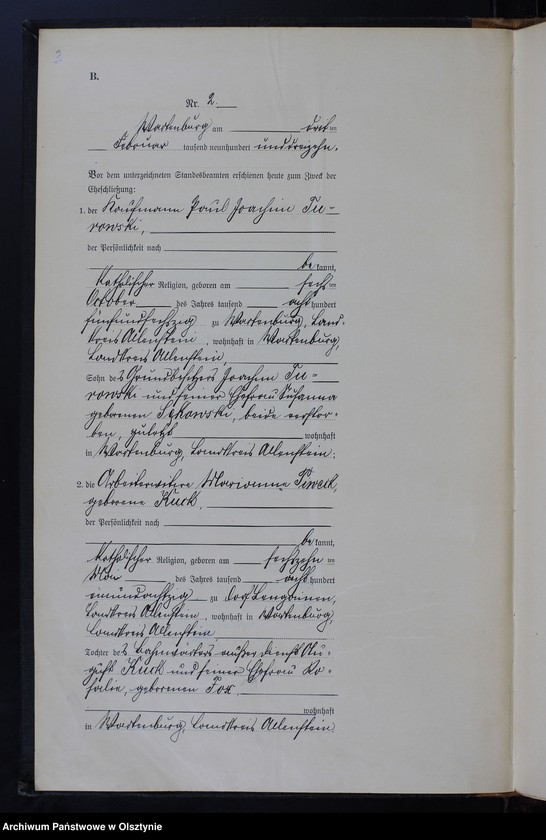 2
B.
Nr. 2.
Wartenburg am drei ten
Februar tausend neunhundert unddreizehn.
Vor dem unterzeichneten Standesbeamten erschienen heute zum Zweck der
Eheschließung:
1. der Kaufmann Paul Joachim Tu-
rowski,
der Persönlichkeit nach
be kannt,
katholischer Religion, geboren am sechs ten
October des Jahres tausend acht hundert
fünfundsechszig zu Wartenburg, Land-
kreis Allenstein, wohnhaft in Wartenburg,
Landkreis Allenstein,
Sohn des Grundbesitzers Joachim Tu-
rowski und seiner Ehefrau Susanna
geborenen beide verstor-
ben, zuletzt wohnhaft
in Wartenburg, Landkreis Allenstein;
2. die Arbeiterwitwe Marianne
geborene Kuck,
der Persönlichkeit nach
be kannt,
katholischer Religion, geboren am sechszehn ten
des Jahres tausend acht hundert
einundachtzig zu Dorf Lengainen,
Landkreis Allenstein, wohnhaft in Wartenburg,
Landkreis Allenstein
Tochter des Bahnwärters außer Dienst Au-
gust Kuck und seiner Ehefrau Ro-
salia, geborenen Fox
wohnhaft
in Wartenburg, Landkreis Allenstein
Archiwum Państwowe w Olsztynie